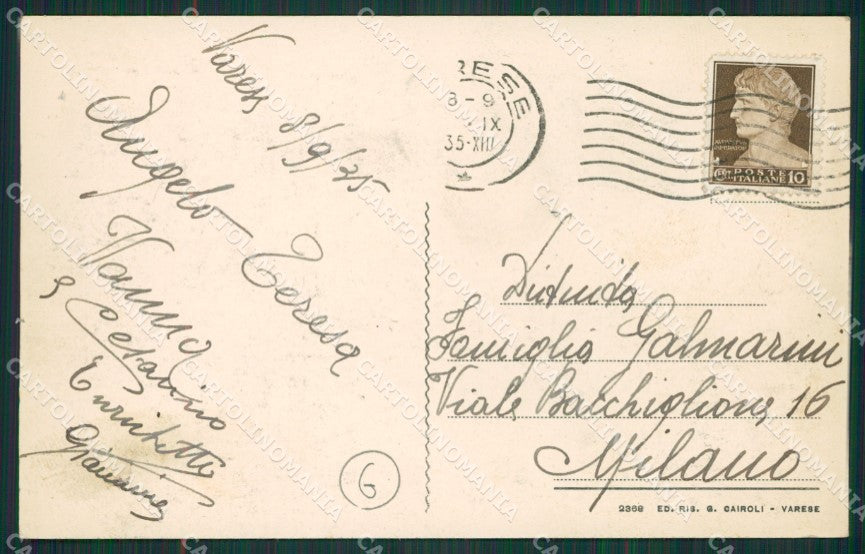 Varese 8/9/35
Angelo Teresa
Nanino
Enrichetta
RESE
8-9
IX
35-XIII
POSTE
ITALIANE 10
Distinta
Famiglia Galmarini
Viale Bacchiglione, 16
Milano
6
2368 ED. RIS. G. CAIROLI - VARESE
CARTOLINOMANIA